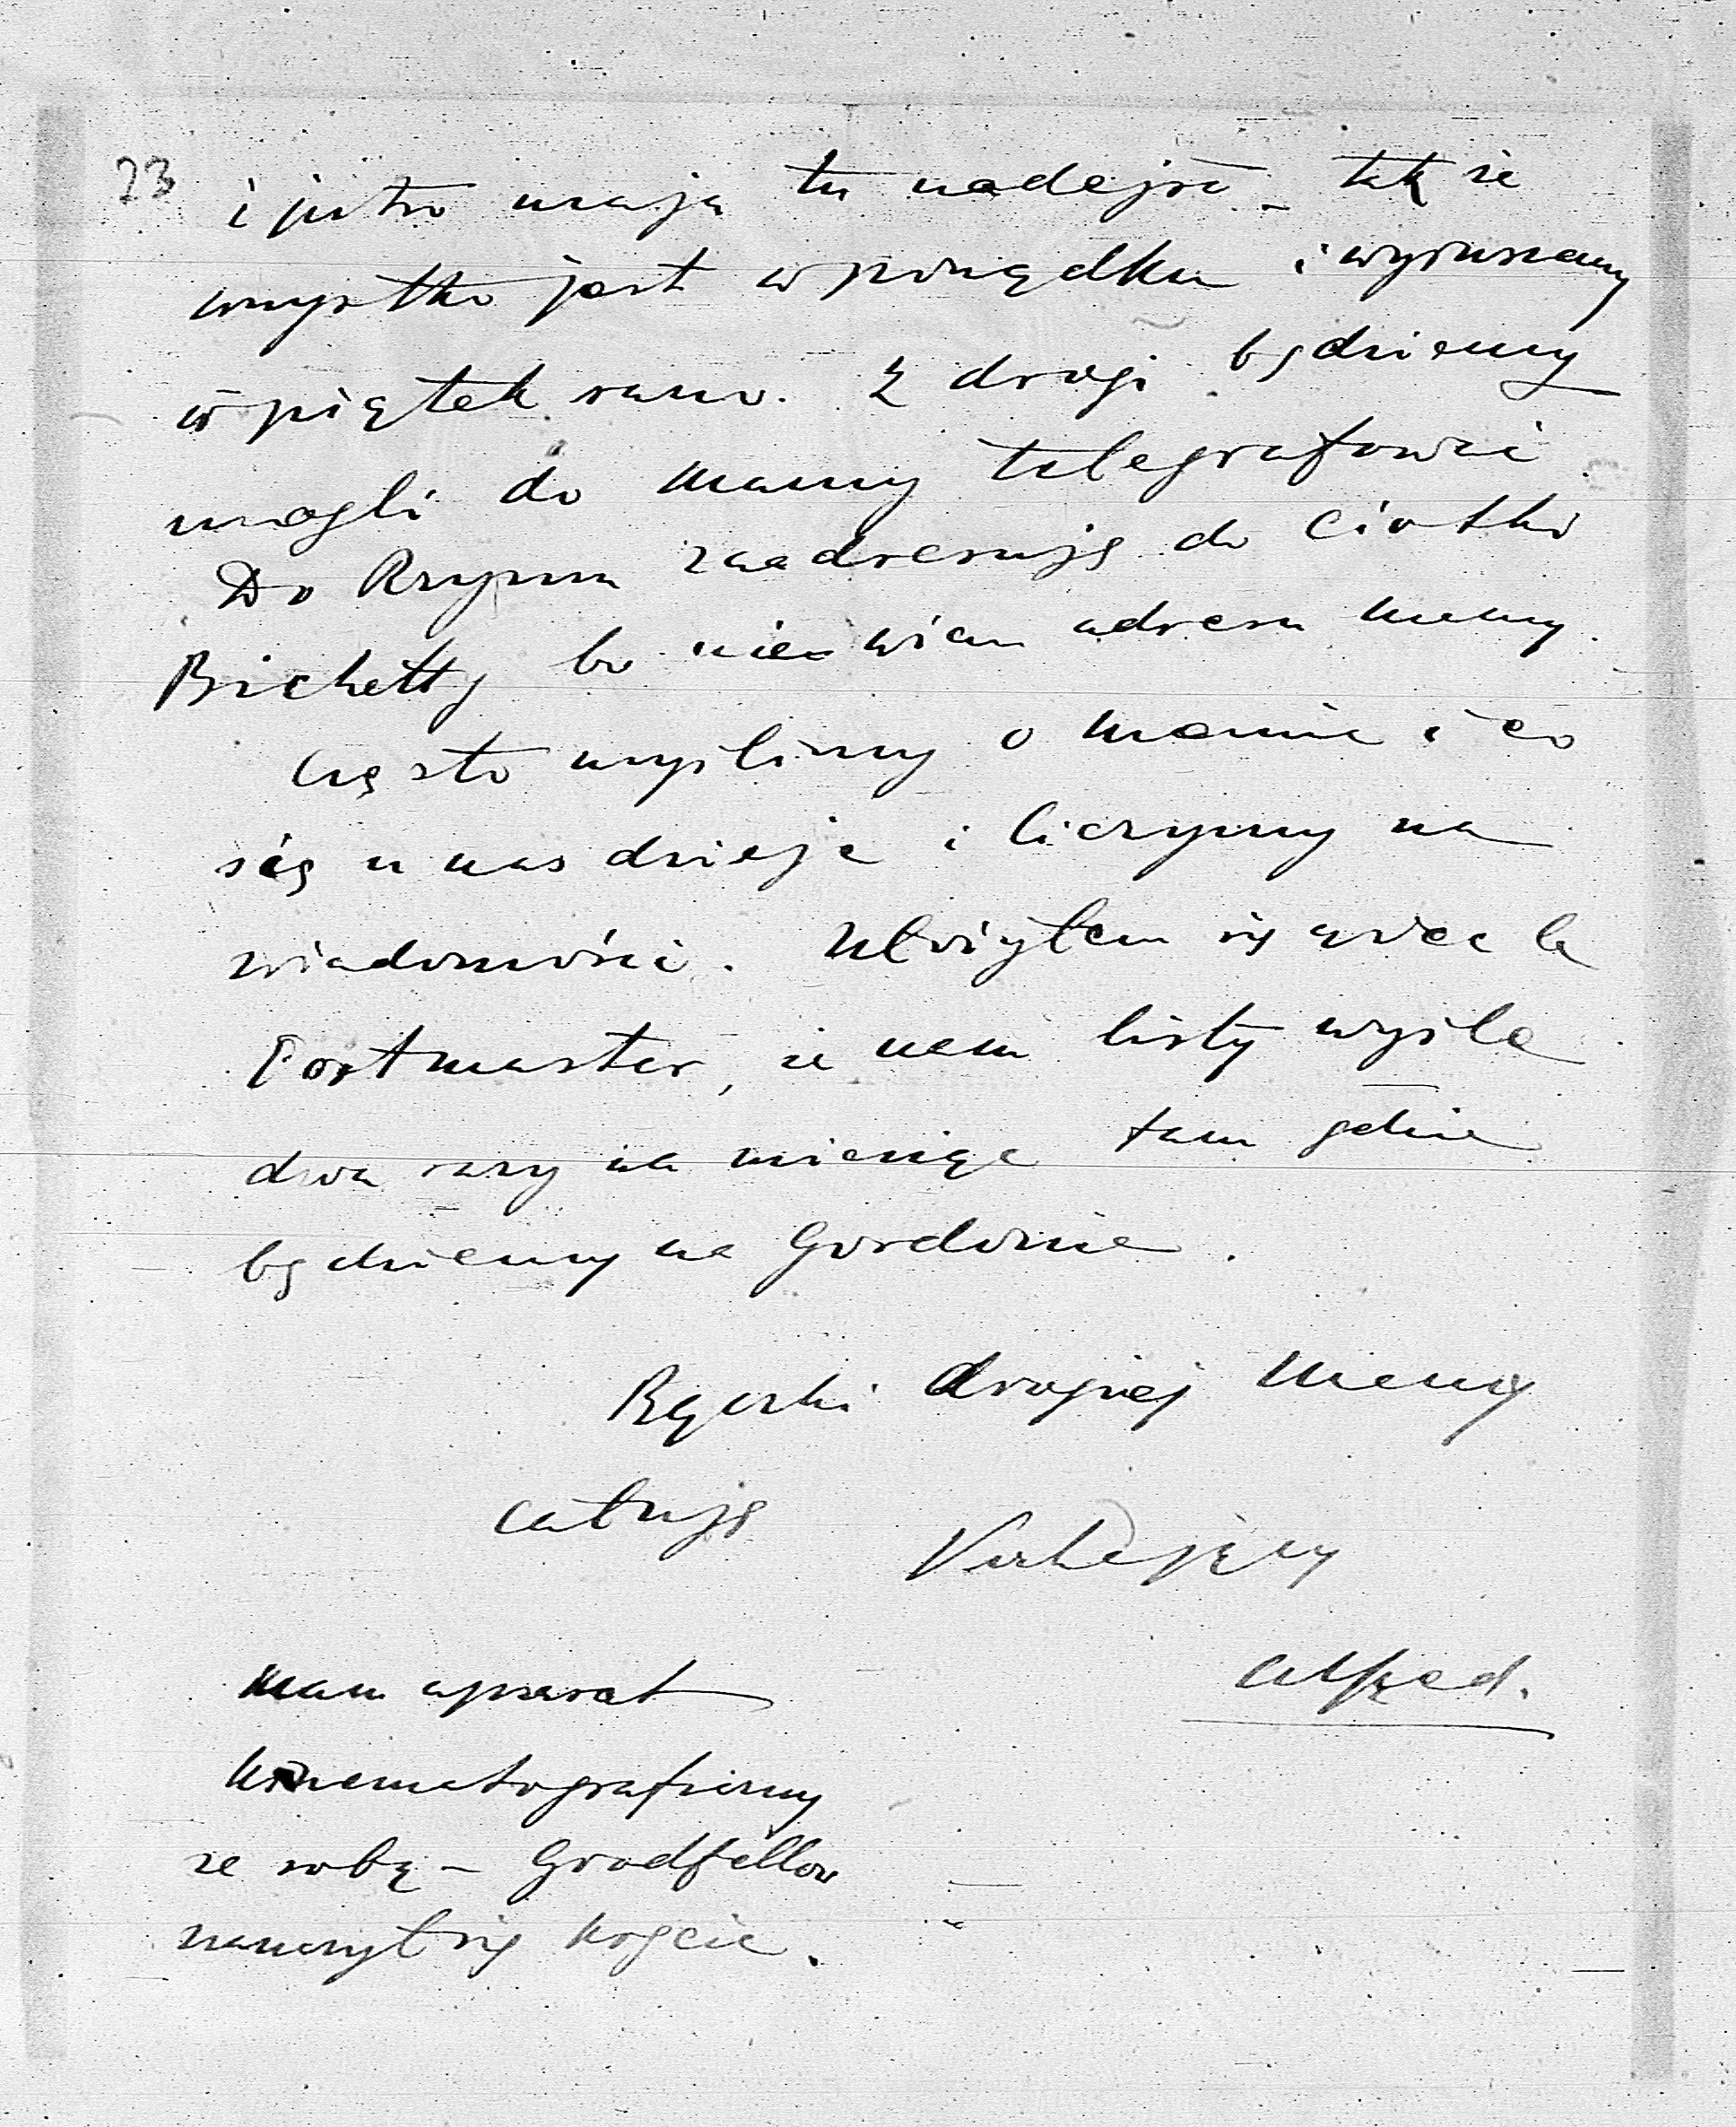 23
i jutro mają tu nadejść – tak że
wszystko jest w porządku i wyruszamy
w piątek rano. Z drogi będziemy
mogli do Mamy telegrafować.
Do Rzymu zaadresuję do Ciotki
Bichetty bo nie wiem adresu Mamy.
Często myślimy o Mamie i co
się u nas dzieje i liczymy na
wiadomości. Ułożyłem się z
Postmaster, że nam listy wyśle
dwa razy na miesiąc tam gdzie
będziemy na Gordonie.
Rączki drogiej Mamy
całuję
Kochający
Alfred.
Mam aparat
kinematograficzny
ze sobą – Goodfellow
nauczył się kręcić.